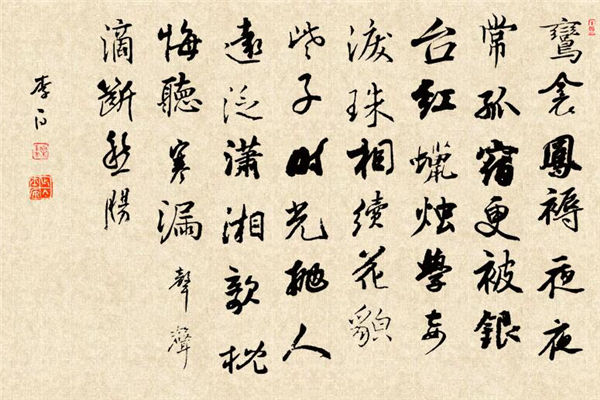 鸞衾鳳褥夜夜
常孤宿更被銀
台紅蠟烛學妾
淚珠相續花貌
些子时光抛人
遠泛瀟湘欹枕
悔聽寒漏聲聲
滴斷愁腸
李白